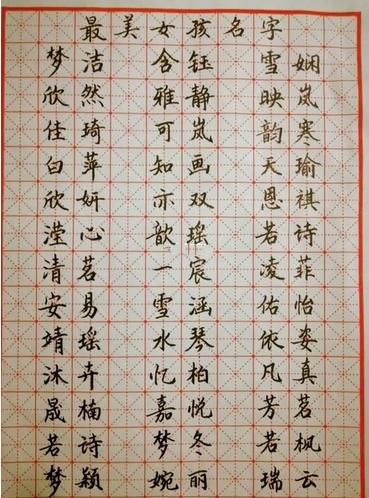 最美女孩名字
梦洁 含钰 雪娴
欣然 雅静 映岚
佳琦 可岚 韵寒
白萍 知画 天瑜
欣妍 亦双 恩祺
滢心 歆瑶 若诗
清茗 一宸 凌菲
安易 雪涵 佑怡
靖瑶 水琴 依姿
沐卉 忆柏 凡真
晟楠 嘉悦 芳茗
若诗 梦冬 若枫
梦颖 婉丽 瑞云